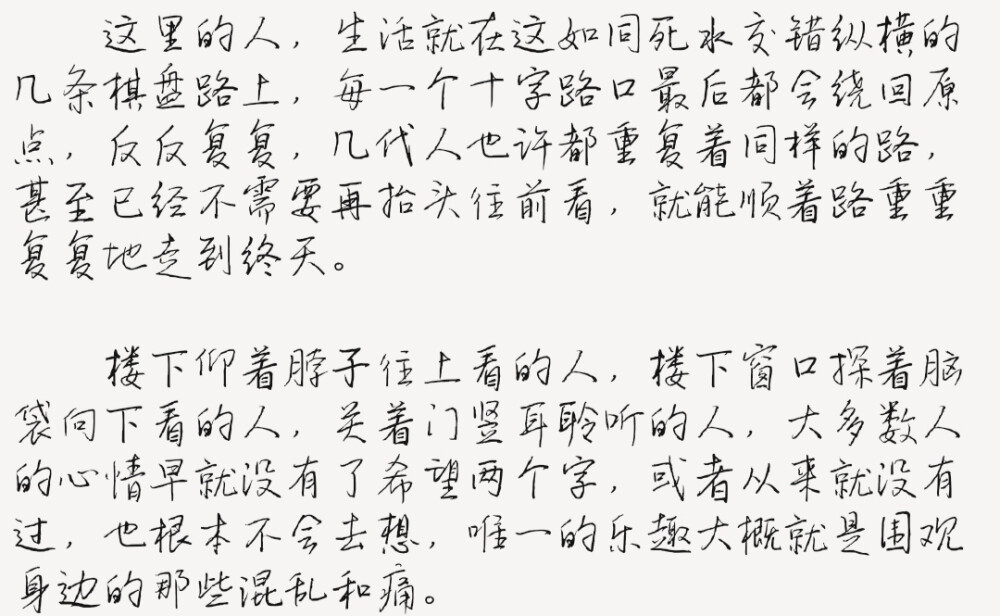 这里的人，生活就在这如同死水交错纵横的
几条棋盘路上，每一个十字路口最后都会绕回原
点，反反复复，几代人也许都重复着同样的路，
甚至已经不需要再抬头往前看，就能顺着路重重
复复地走到终天。
楼下仰着脖子往上看的人，楼下窗口探着脑
袋向下看的人，关着门竖耳聆听的人，大多数人
的心情早就没有了希望两个字，或者从来就没有
过，也根本不会去想，唯一的乐趣大概就是围观
身边的那些混乱和痛。